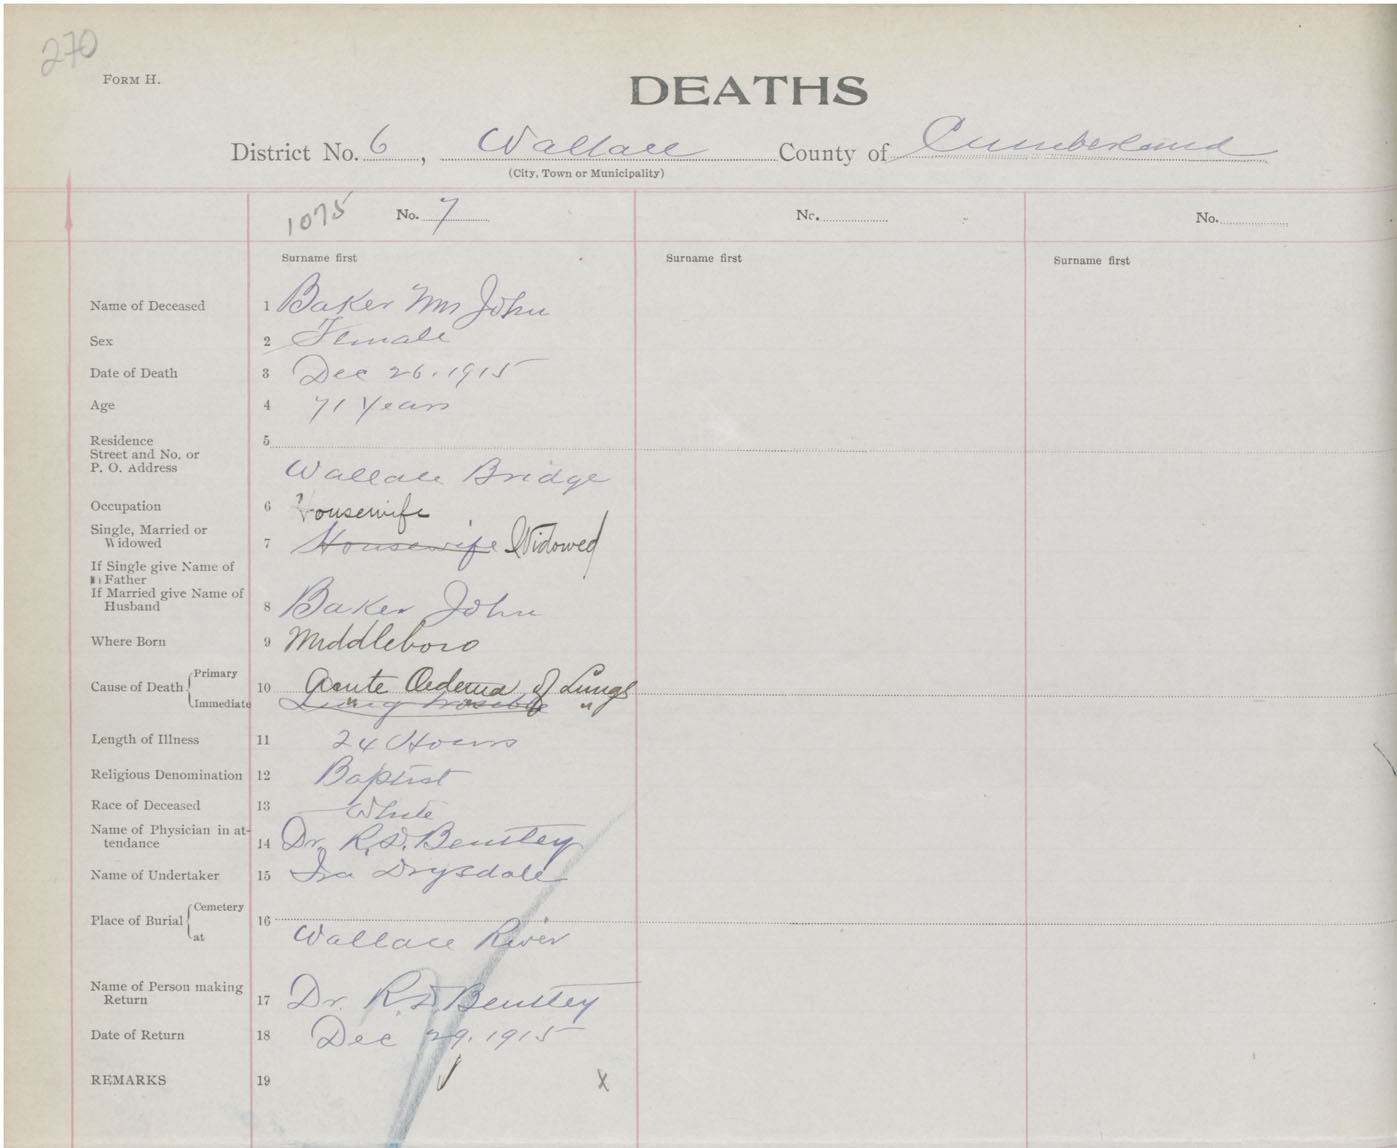 270
FORM H.
DEATHS
District No. 6, Wallace County of Cumberland
(City, Town or Municipality)
1075 No. 7 No. No.
Surname first Surname first Surname first
Name of Deceased 1 Baker Mrs John
Sex 2 Female
Date of Death 3 Dec 26. 1915
Age 4 71 Years
Residence 5
Street and No. or
P. O. Address Wallace Bridge
Occupation 6 Housewife
Single, Married or
Widowed 7 Housewife Widowed
If Single give Name of
Father
If Married give Name of
Husband 8 Baker John
Where Born 9 Middleboro
Cause of Death Primary 10 Acute Oedema of Lungs
Immediate Lung " "
Length of Illness 11 24 Hours
Religious Denomination 12 Baptist
Race of Deceased 13 White
Name of Physician in at-
tendance 14 Dr. R. D. Bentley
Name of Undertaker 15 Ira Drysdale
Place of Burial Cemetery 16
at Wallace River
Name of Person making
Return 17 Dr. R. D. Bentley
Date of Return 18 Dec 29. 1915
REMARKS 19 X